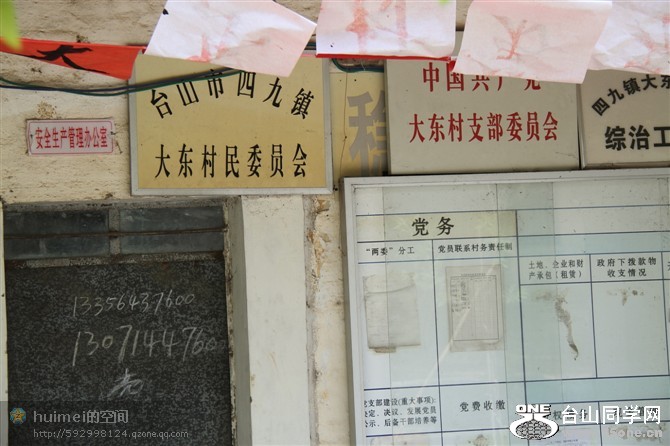 大
安全生产管理办公室
台山市四九镇
大东村民委员会
中国共产党
大东村支部委员会
四九镇大东
综治工
党务
“两委”分工
党员联系村务责任制
土地、企业和财
产承包（租赁）
政府下拨款物
收支情况
党支部建设(重大事项):
决定、决议、发展党员
公示、后备干部培养等
党费收缴
13356437600
huimei的空间
http://592998124.qzone.qq.com
ONE
台山同学网